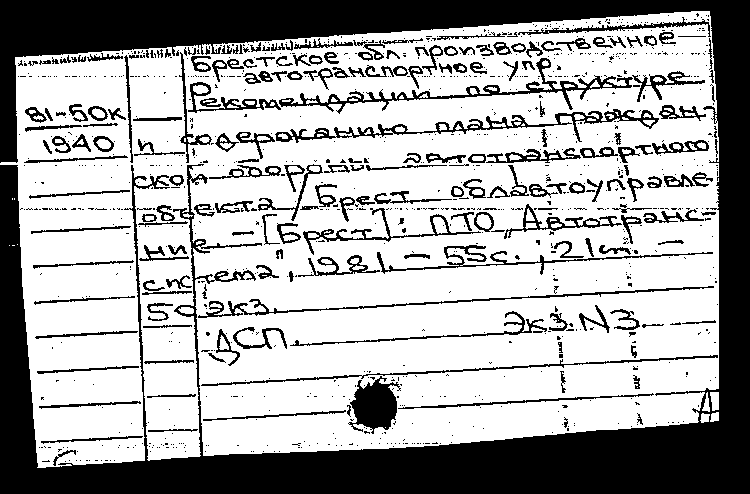 Брестское обл. производственное
автотранспортное упр.
Рекомендации по структуре
81-50к
1940 и содержанию плана граждан-
ской обороны автотранспортного
объекта / Брест. облавтоуправле-
ние. – [Брест]: ПТО „Автотранс-
система", 1981. – 55с. ; 21см. –
50 экз.
ДСП. Экз. N3.
А